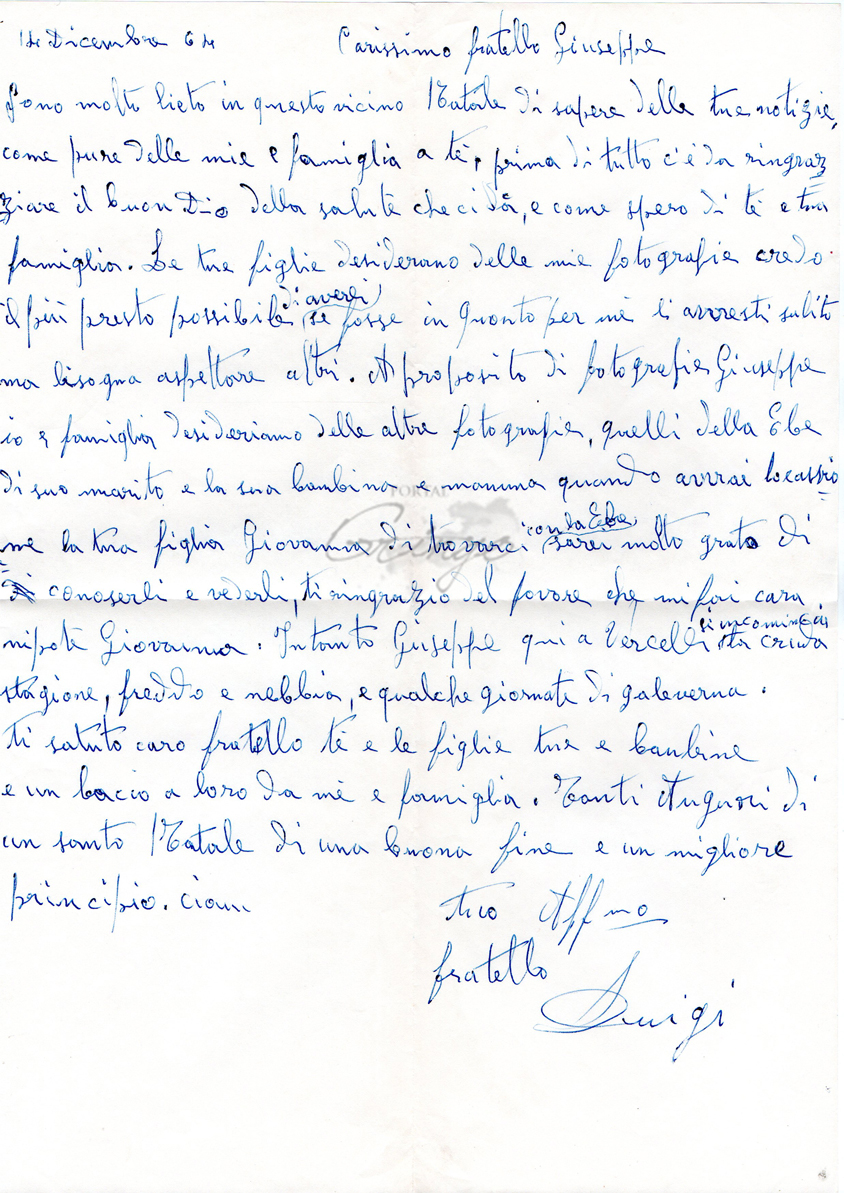 14 Dicembre 64 Carissimo fratello Giuseppe
Sono molto lieto in questo vicino Natale di sapere delle tue notizie,
come pure delle mie e famiglia a tè, prima di tutto c'é da ringraz
ziare il buon Dio della salute che ci dà, e come spero di tè e tua
famiglia. Le tue figlie desiderano delle mie fotografie credo
di averli
il più presto possibile, se fosse in quonto per mè li avresti subito
ma bisogna aspettare altri. A proposito di fotografie Giuseppe
io e famiglia desideriamo delle altre fotografie, quelli della Ebe
di suo marito e la sua bambina e mamma quando avrai locassio
ne la tua figlia Giovanna di trovarci con la Ebe, sarei molto grato di
conoserli e vederli, ti ringrazio del favore che mi fai cara
nipote Giovanna. Intanto Giuseppe qui a Vercelli si incomincia
sta cruda
stagione, freddo e nebbia, e qualche giornate di galaverna.
ti saluto caro fratello tè e le figlie tue e bambine
e un bacio a loro da mè e famiglia. Tanti Auguroi di
un santo Natale di una buona fine e un migliore
principio. ciau
tuo Affmo
fratello
Luigi
PORTAL